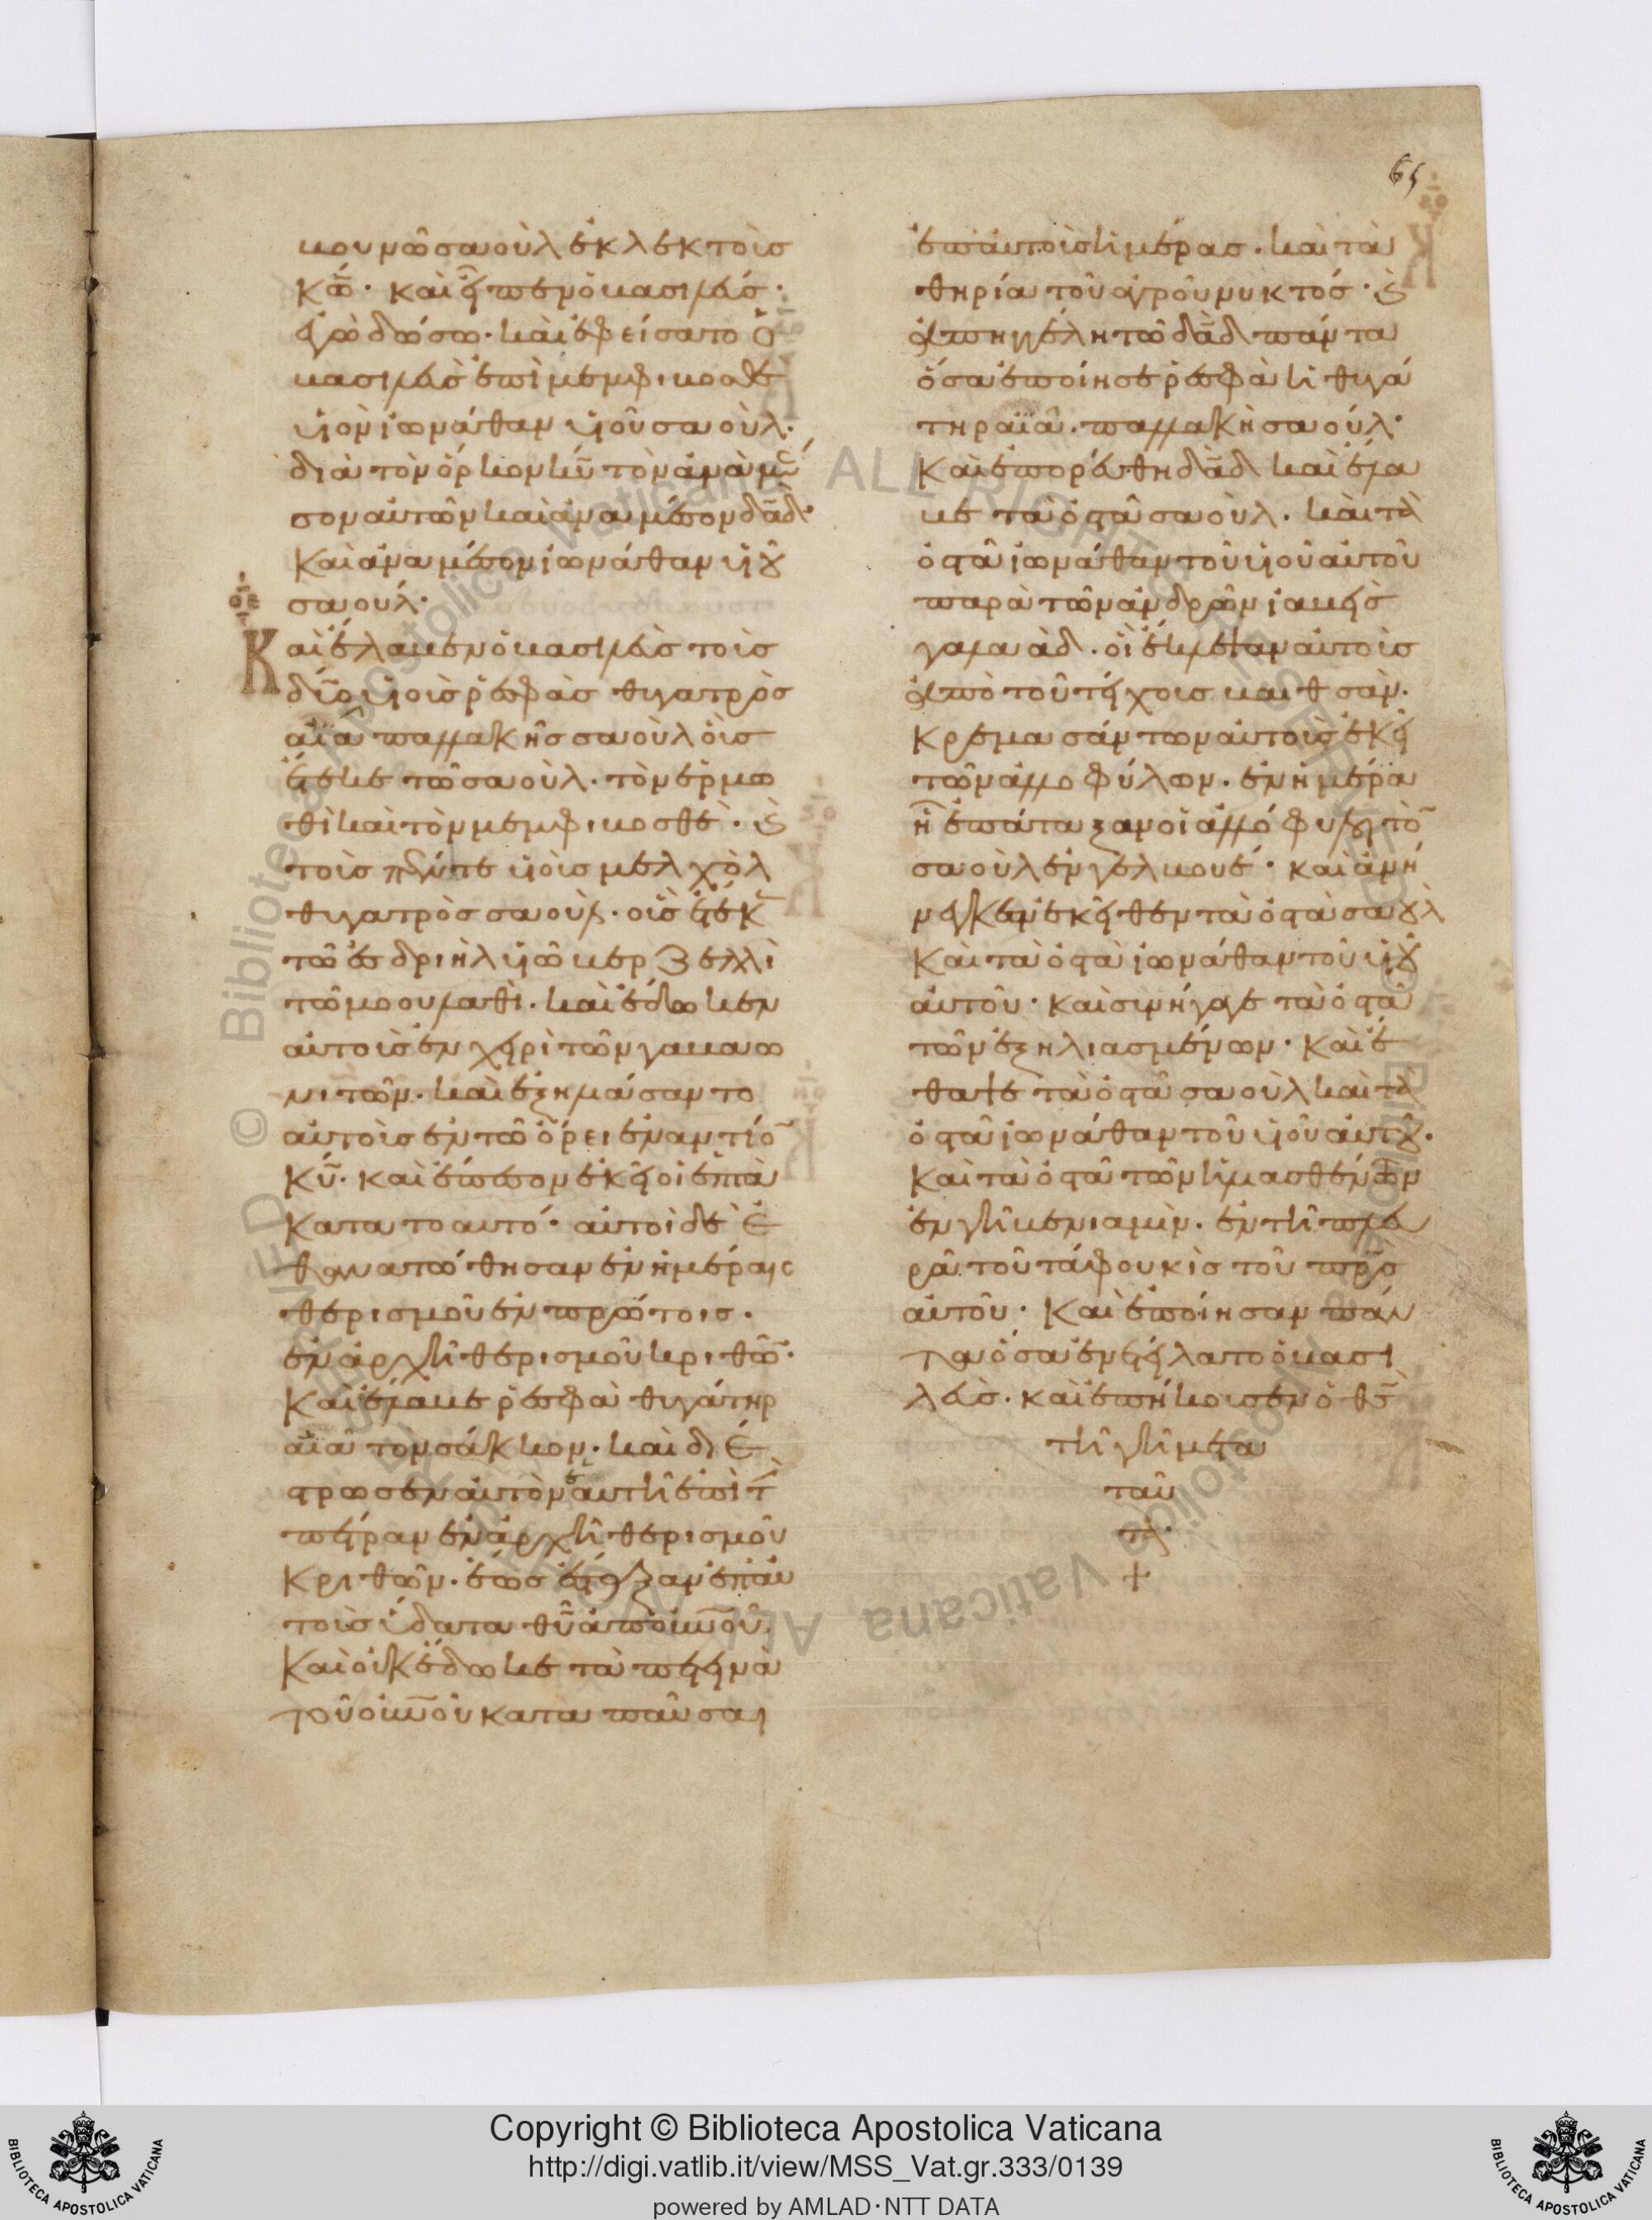 65
βουνῶ σαοὺλ ἐκλεκτοῖς
κ̅ω̅· καὶ εἶπεν ὁ βασιλεύς·
ἐγὼ δώσω· καὶ ἐφείσατο ὁ
βασιλεὺς ἐπὶ μεμφιβοσθὲ
υἱὸν ἰωνάθαν υἱοῦ σαοὺλ·
διὰ τὸν ὅρκον κ̅υ̅ τὸν ἀνὰ μέ
σον αὐτῶν καὶ ἀνὰ μέσον δα̅δ̅·
καὶ ἀνα μέσον ἰωνάθαν υἱοῦ
σαουλ·
οε
Καὶ ἔλαβεν ὁ βασιλεὺς τοῖς
δύο υἱοῖς ῥεσφὰς θυγατρὸς
αἰϊᾶ παλλακῆς σαοὺλ οὓς
ἔτεκε τῶ σαοὺλ· τὸν ἑρμω
θὶ καὶ τὸν μεμφιβοσθὲ· καὶ
τοῖς πέντε υἱοῖς μελχὸλ
θυγατρὸς σαοὺλ· οἷς ἔτεκεν
τῶ ἐσδριὴλ υἱῶ βερζελλὶ
τῶ μοουλαθὶ· καὶ ἔδωκεν
αὐτοῖς ἐν χειρὶ τῶν γαβαω
νιτῶν· καὶ ἐξηλίασαν το
αὐτοῖς ἐν τῶ ὄρει ἐναντίον
κ̅υ̅· καὶ ἔπεσον ἐκεῖ οἱ ἑπτὰ
κατα το αυτό· αὐτοὶ δὲ ἐ
θανατώθησαν ἐν ἡμέραις
θερισμοῦ ἐν πρώτοις·
ἐν ἀρχῆ θερισμοῦ κριθῶν·
Καὶ ἔλαβε ῥεσφὰ θυγάτηρ
αἰϊᾶ τον σάκκον· καὶ διέ
στρωσεν αὐτὸν αυτῆ ἐπὶ τὴν
πέτραν ἐν ἀρχῆ θερισμοῦ
κριθῶν· ἕως ἔσταξαν ἐπ' αὐ
τοῖς ὕδατα θ̅υ̅ ἀπὸ οὐ̅νοῦ.
Καὶ οὐκ ἔδωκε τὰ πετεινὰ
τοῦ οὐ̅νοῦ καταπαῦσαι
ἐπ' αὐτοῖς ἡμέρας· καὶ τὰ
θηρία τοῦ ἀγροῦ νυκτός· καὶ
ἀπηγγέλη τῶ δα̅δ̅ πάντα
ὅσα ἐποίησε ῥεσφὰ ἡ θυγά
τηρ αϊᾶ· παλλακὴ σαούλ·
Καὶ ἐπορεύθη δα̅δ̅ καὶ ἔλα
βε τὰ ὀστᾶ σαοὺλ· καὶ τὰ
ὀστᾶ ἰωνάθαν τοῦ υἱοῦ αὐτοῦ
παρὰ τῶν ἀνδρῶν ἰαβεὶς
γαλααὰδ· οἳ ἔκλεψαν αὐτοῖς
ἀπὸ τοῦ τείχοις βαιθσάν·
κρεμασάντων αὐτοῖς ἐκεῖ
τῶν ἀλλοφύλων· ἐν ἡμέρα
ἧ ἐπάταξαν οἱ ἀλλόφυλοι τὸν
σαοὺλ ἐν γελβουέ· καὶ ἀνή
νεγκαν ἐκεῖθεν τὰ ὀστὰ σαοὺλ
Καὶ τὰ ὀστὰ ἰωνάθαν τοῦ υἱοῦ
αὐτοῦ· καὶ συνήγαγε τὰ ὀστᾶ
τῶν ἐξηλιασμένων· καὶ ἔ
θαψε τὰ ὀστᾶ σαοὺλ καὶ τὰ
ὀστᾶ ἰωνάθαν τοῦ υἱοῦ αὐτοῦ·
Καὶ τὰ ὀστᾶ τῶν ἡλιασθέντων
ἐν γῆ βενιαμὶν· ἐν τῆ πλευ
ρᾶ τοῦ τάφου κὶς τοῦ πρ̅ς
αὐτοῦ· Καὶ ἐποίησαν πάν
τα ὅσα ἐνετείλατο ὁ βασι
λεὺς· καὶ ἐπήκουσεν ὁ θ̅ς̅
τῆ γῆ μετα
ταῦ
τλ·
+
Copyright © Biblioteca Apostolica Vaticana
http://digi.vatlib.it/view/MSS_Vat.gr.333/0139
powered by AMLAD·NTT DATA